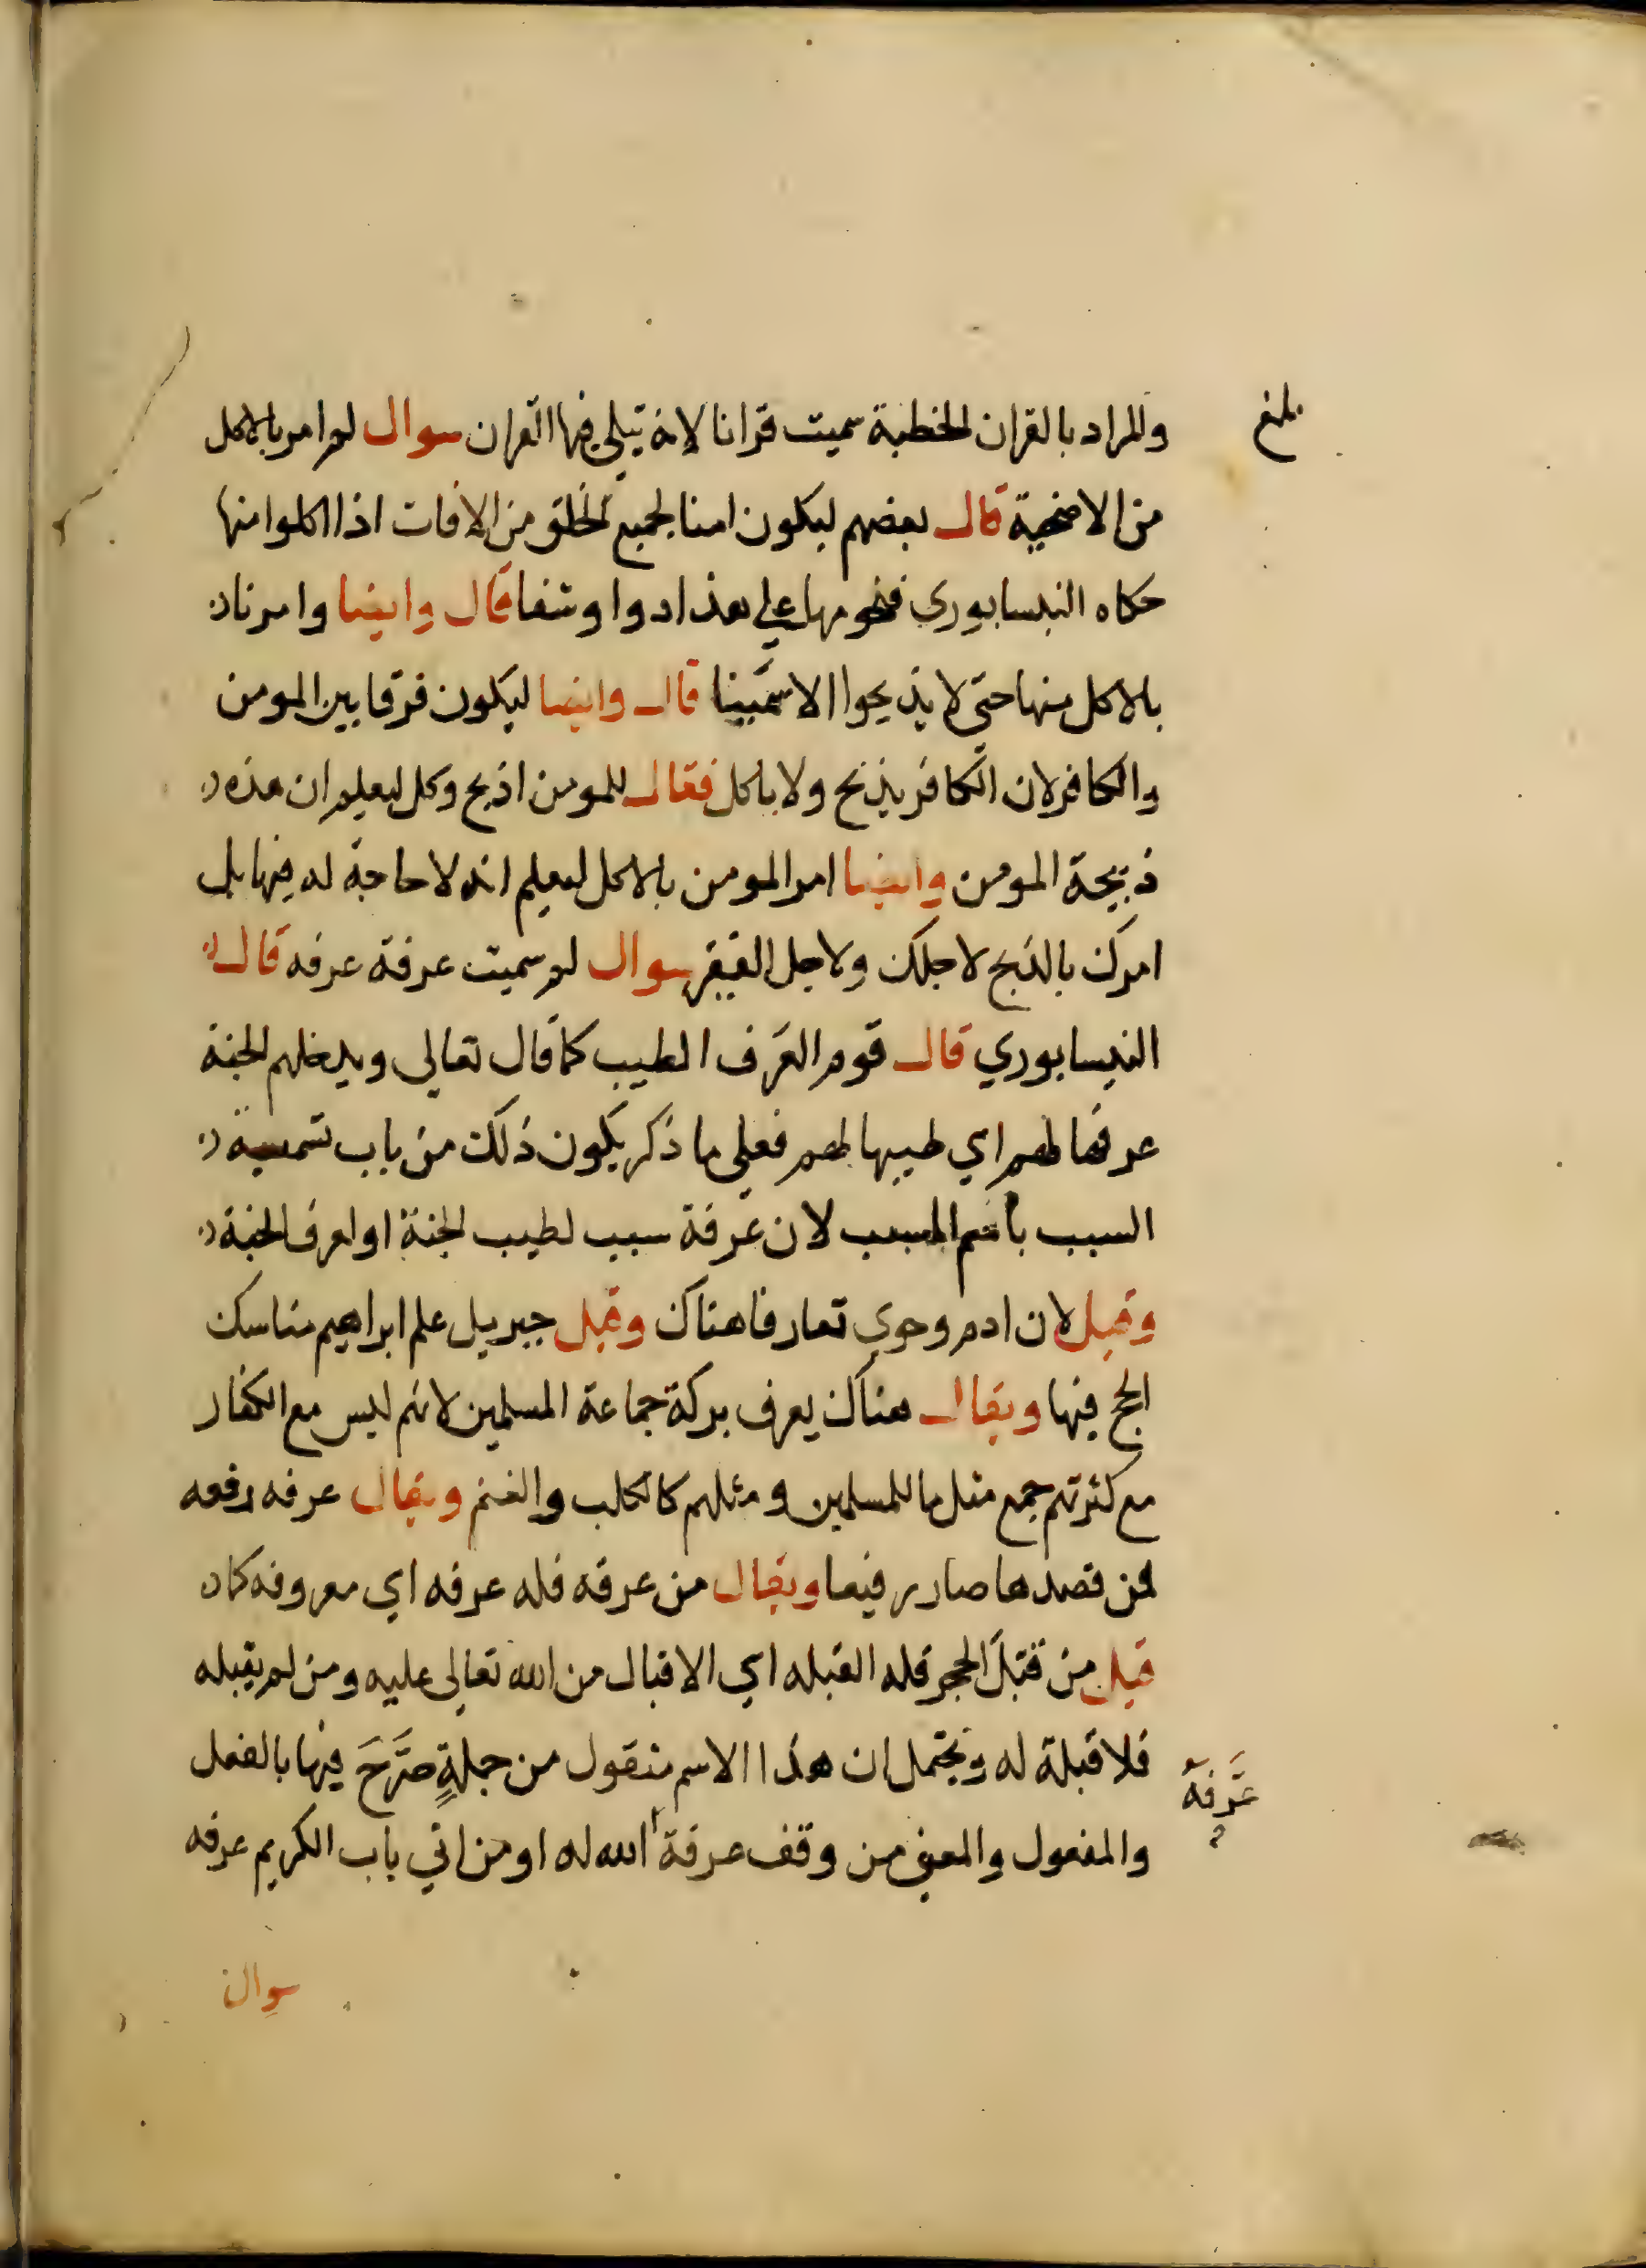 بلغ
والمراد بالقران الخطبة سميت قرانا لانه يتلى فيها القران سوال لم امر بالاكل
من الاضحية قال بعضهم ليكون امنا لجميع الخلق من الافات اذا اكلوا منها
حكاه النيسابوري فلحومها على هذا دوا وشفا قال وايضا وامرنا
بالاكل منها حتى لا يذبحوا الا سمينا قال وايضا ليكون فرقا بين المومن
والكافر لان الكافر يذبح ولا ياكل فقال للمومن اذبح وكل ليعلم ان هذه
ذبيحة المومن وايضا امر المومن بالاكل ليعلم انه لا حاجة له فيها بل
امرك بالذبح لاجلك ولاجل الفقير سوال لم سميت عرفة عرفه قال
النيسابوري قال قوم العَرف الطيب كما قال تعالى ويدخلهم الجنة
عرفها لهم اي طيبها لهم فعلى ما ذكر يكون ذلك من باب تسمية
السبب باسم المسبب لان عرفة سبب لطيب الجنة او لعرف الجنة
وقيل لان ادم وحوى تعارفا هناك وقيل جبريل علم ابراهيم مناسك
الحج فيها ويقال هناك يعرف بركة جماعة المسلمين لانهم ليس مع الكفار
مع كثرتهم جمع مثل ما للمسلمين ومثلهم كالكلب والغنم ويقال عرفه رفعه
فمن قصدها صار رفيعا ويقال من عرفه فله عرفه اي معروفه كان
قيل من قبّل الحجر فله القبله اي الاقبال من الله تعالى عليه ومن لم يقبله
فلا قبلة له ويحتمل ان هذا الاسم منقول من جملةٍ صَرَّحَ فيها بالفعل
والمفعول والمعنى من وقف عرفة الله له او من اتى باب الكريم عرفه
عَرفه
سوال